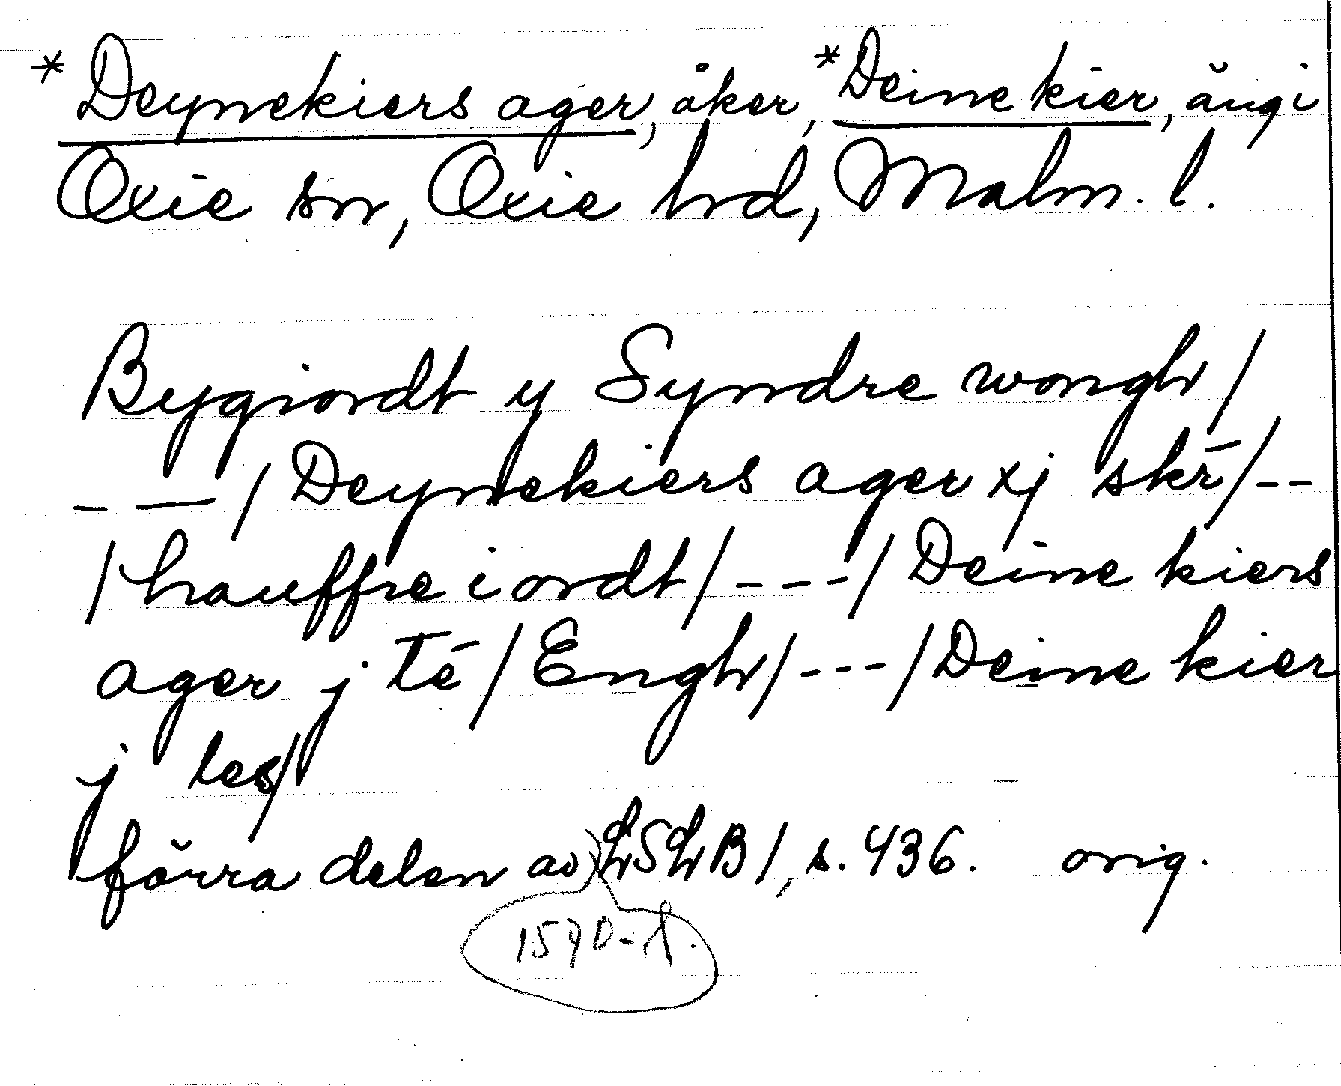 * Deynekiers ager, åker, * Deine kier, äng i
Oxie sn, Oxie hrd, Malm. l.
Bygiordt y Syndre wongh /
- — / Deynekiers ager xj skr̄ / --
/ hauffre iordt / --- / Deine kiers
ager j tē / Engh / --- / Deine kier
j les /
förra delen av LSLB 1, s. 436. orig.
1590-t.